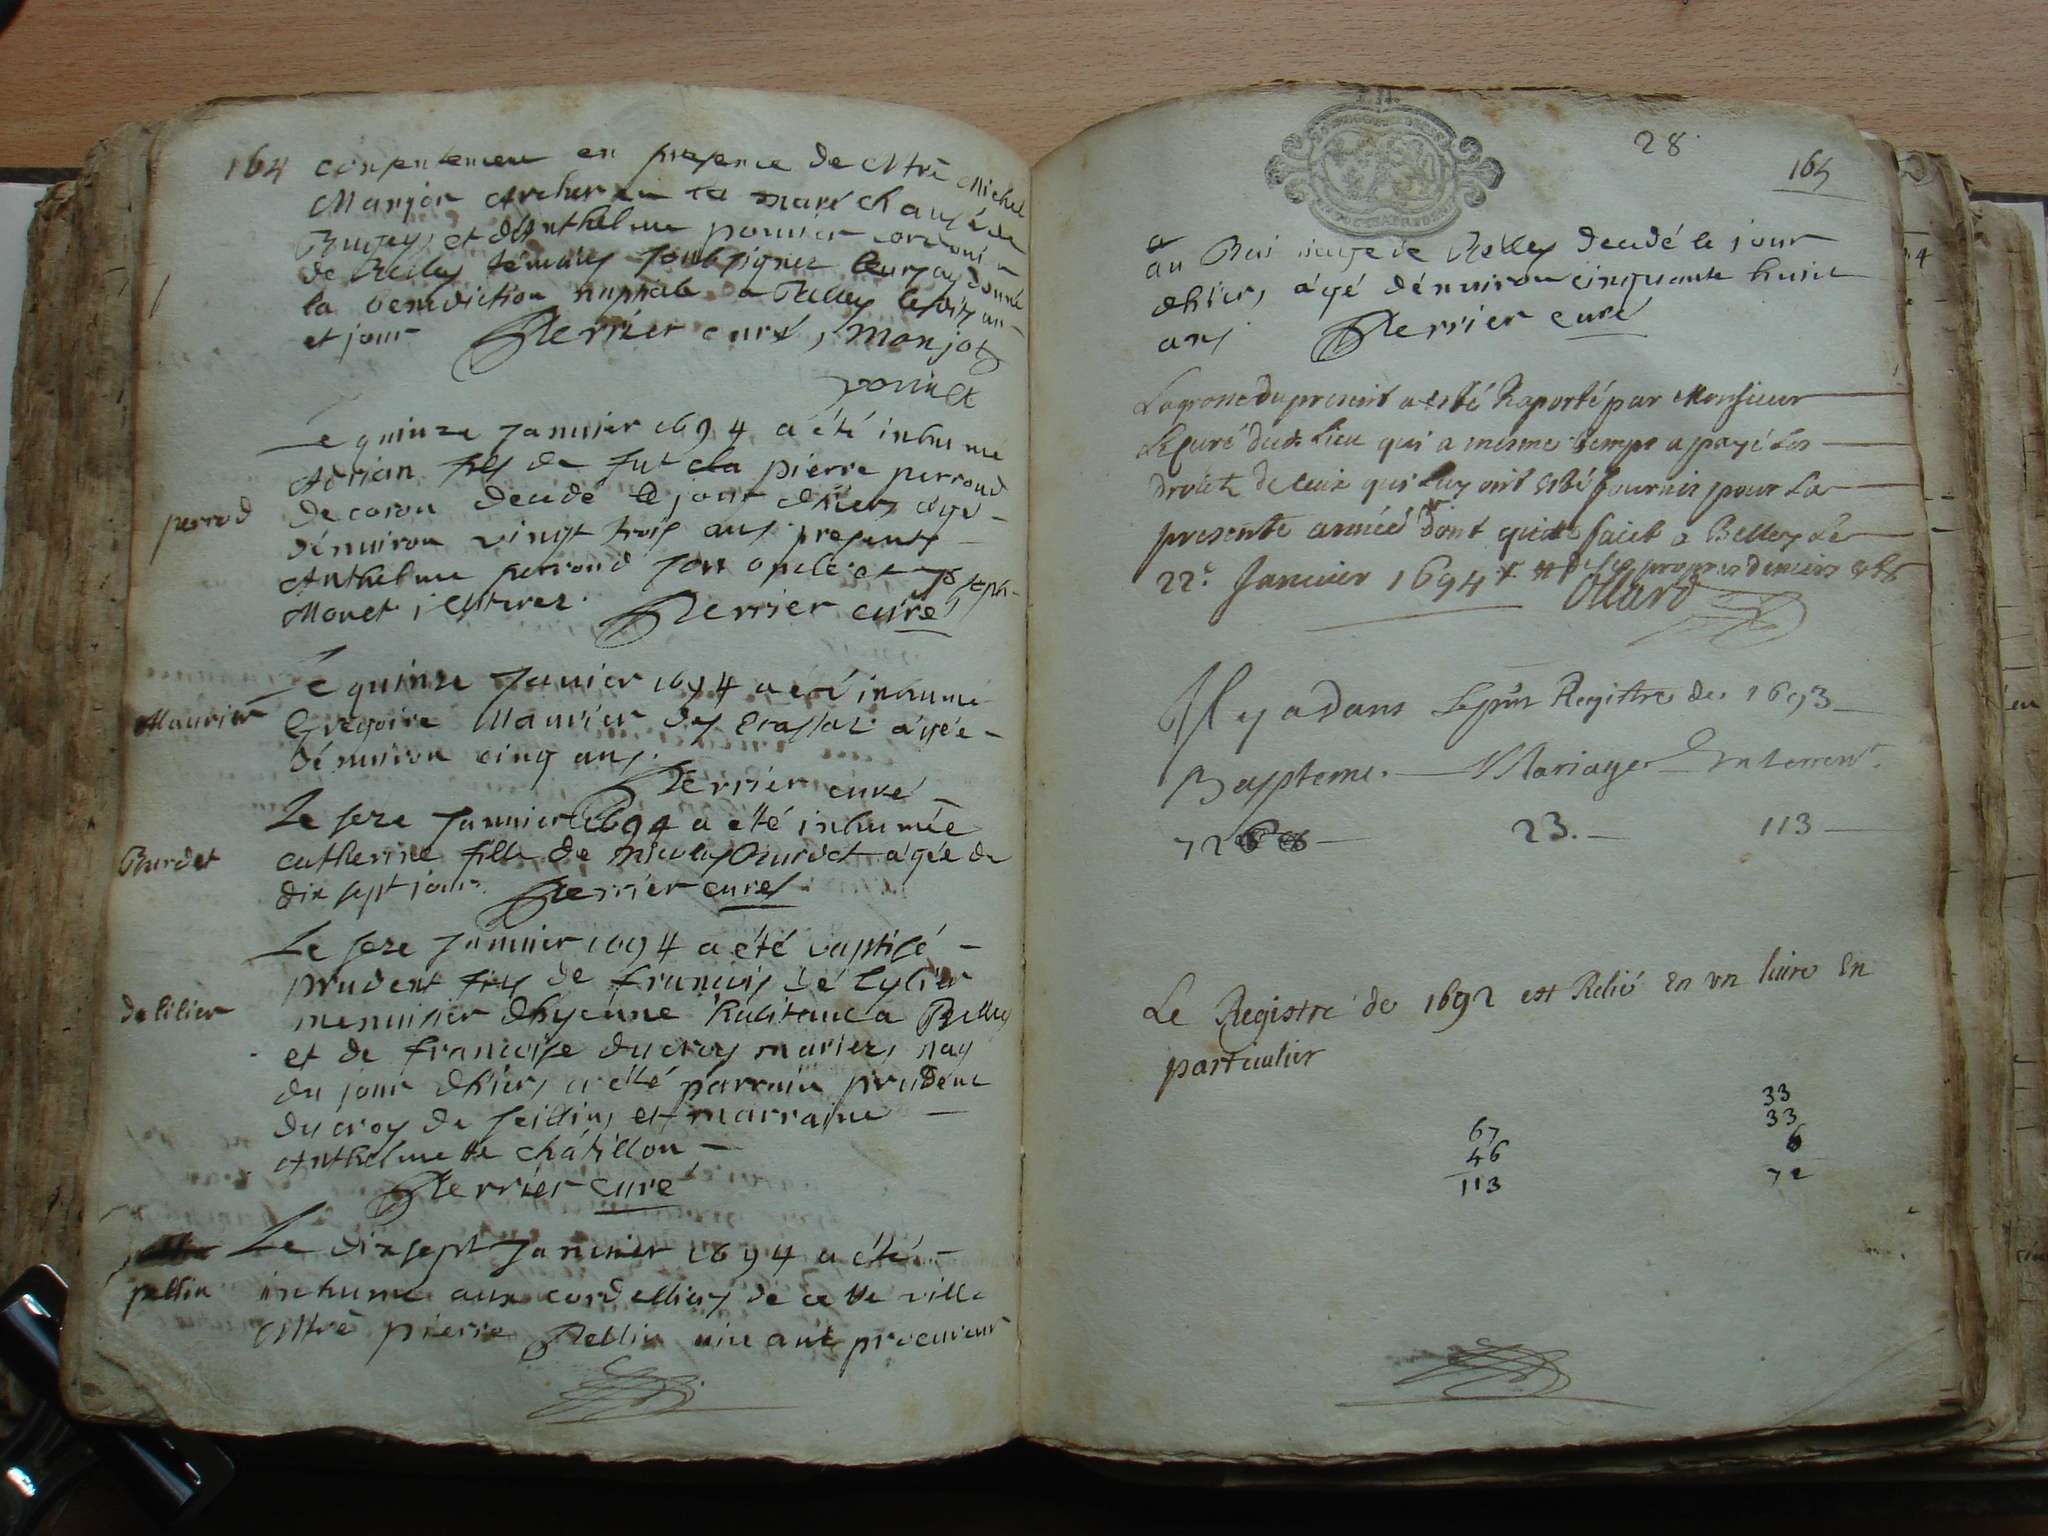 164
consentement en presence de Mtre Michel
Manjot Archer en la maréchaussé de
Bugey, et d'Anthelme ponnier cordoni
de Belley témoins soubsignez leurs ay donné
la benediction nuptiale a Belley lesdits an
et jour Perrier curé, Manjot
ponnier
Le quinze Janvier 1694 a été inhumé
Adrian fils de fut pierre perroud
perrod
de coron decedé le jour d'hier agé
d'environ vingt trois ans presents
Anthelme perroud son oncle et Joseph
Monet
Perrier curé
Le quinze Janvier 1694 a été inhumé
Maurier
Gregoire Maurier des agée
d'environ cinq ans.
Perrier curé
Le seze Janvier 1694 a été inhumée
Bourdet
catherine fille de nicolas Bourdet agée de
dix sept jours. Perrier curé
Le seze Janvier 1694 a été baptisé
prudent fils de francois de Lylier
delilier
menuisier d'hyenne habitant a Belley
et de francoise ducroy mariez, nay
du jour d'hier, a été parrain prudent
ducroy de seillin, et marraine
Anthelmette châtillon
Perrier curé
Le dix sept Janvier 1694 a été
pellin
inhumé aux cordelliers de cette ville
Mtre pierre Pellin vivant procureur
28
165
au Bailliage de Belley decedé le jour
d'hier, agé d'environ cinquante huit
ans Perrier curé
La grosse du present a esté Raporté par Monsieur
Le Curé dudt Lieu qui a mesme temps a payé Les
droicts de ceux qui Luy ont esté fournis pour La
presente année dont quitte faict a Belley Le
22e Janvier 1694 de ses propres deniers
Ollard
Il y a dans Le pnt Registre de 1693
Bapteme. Mariages Enterremt.
72 23. 113
Le Registre de 1692 est Relié En un livre En
particulier
33
33
6
72
67
46
113